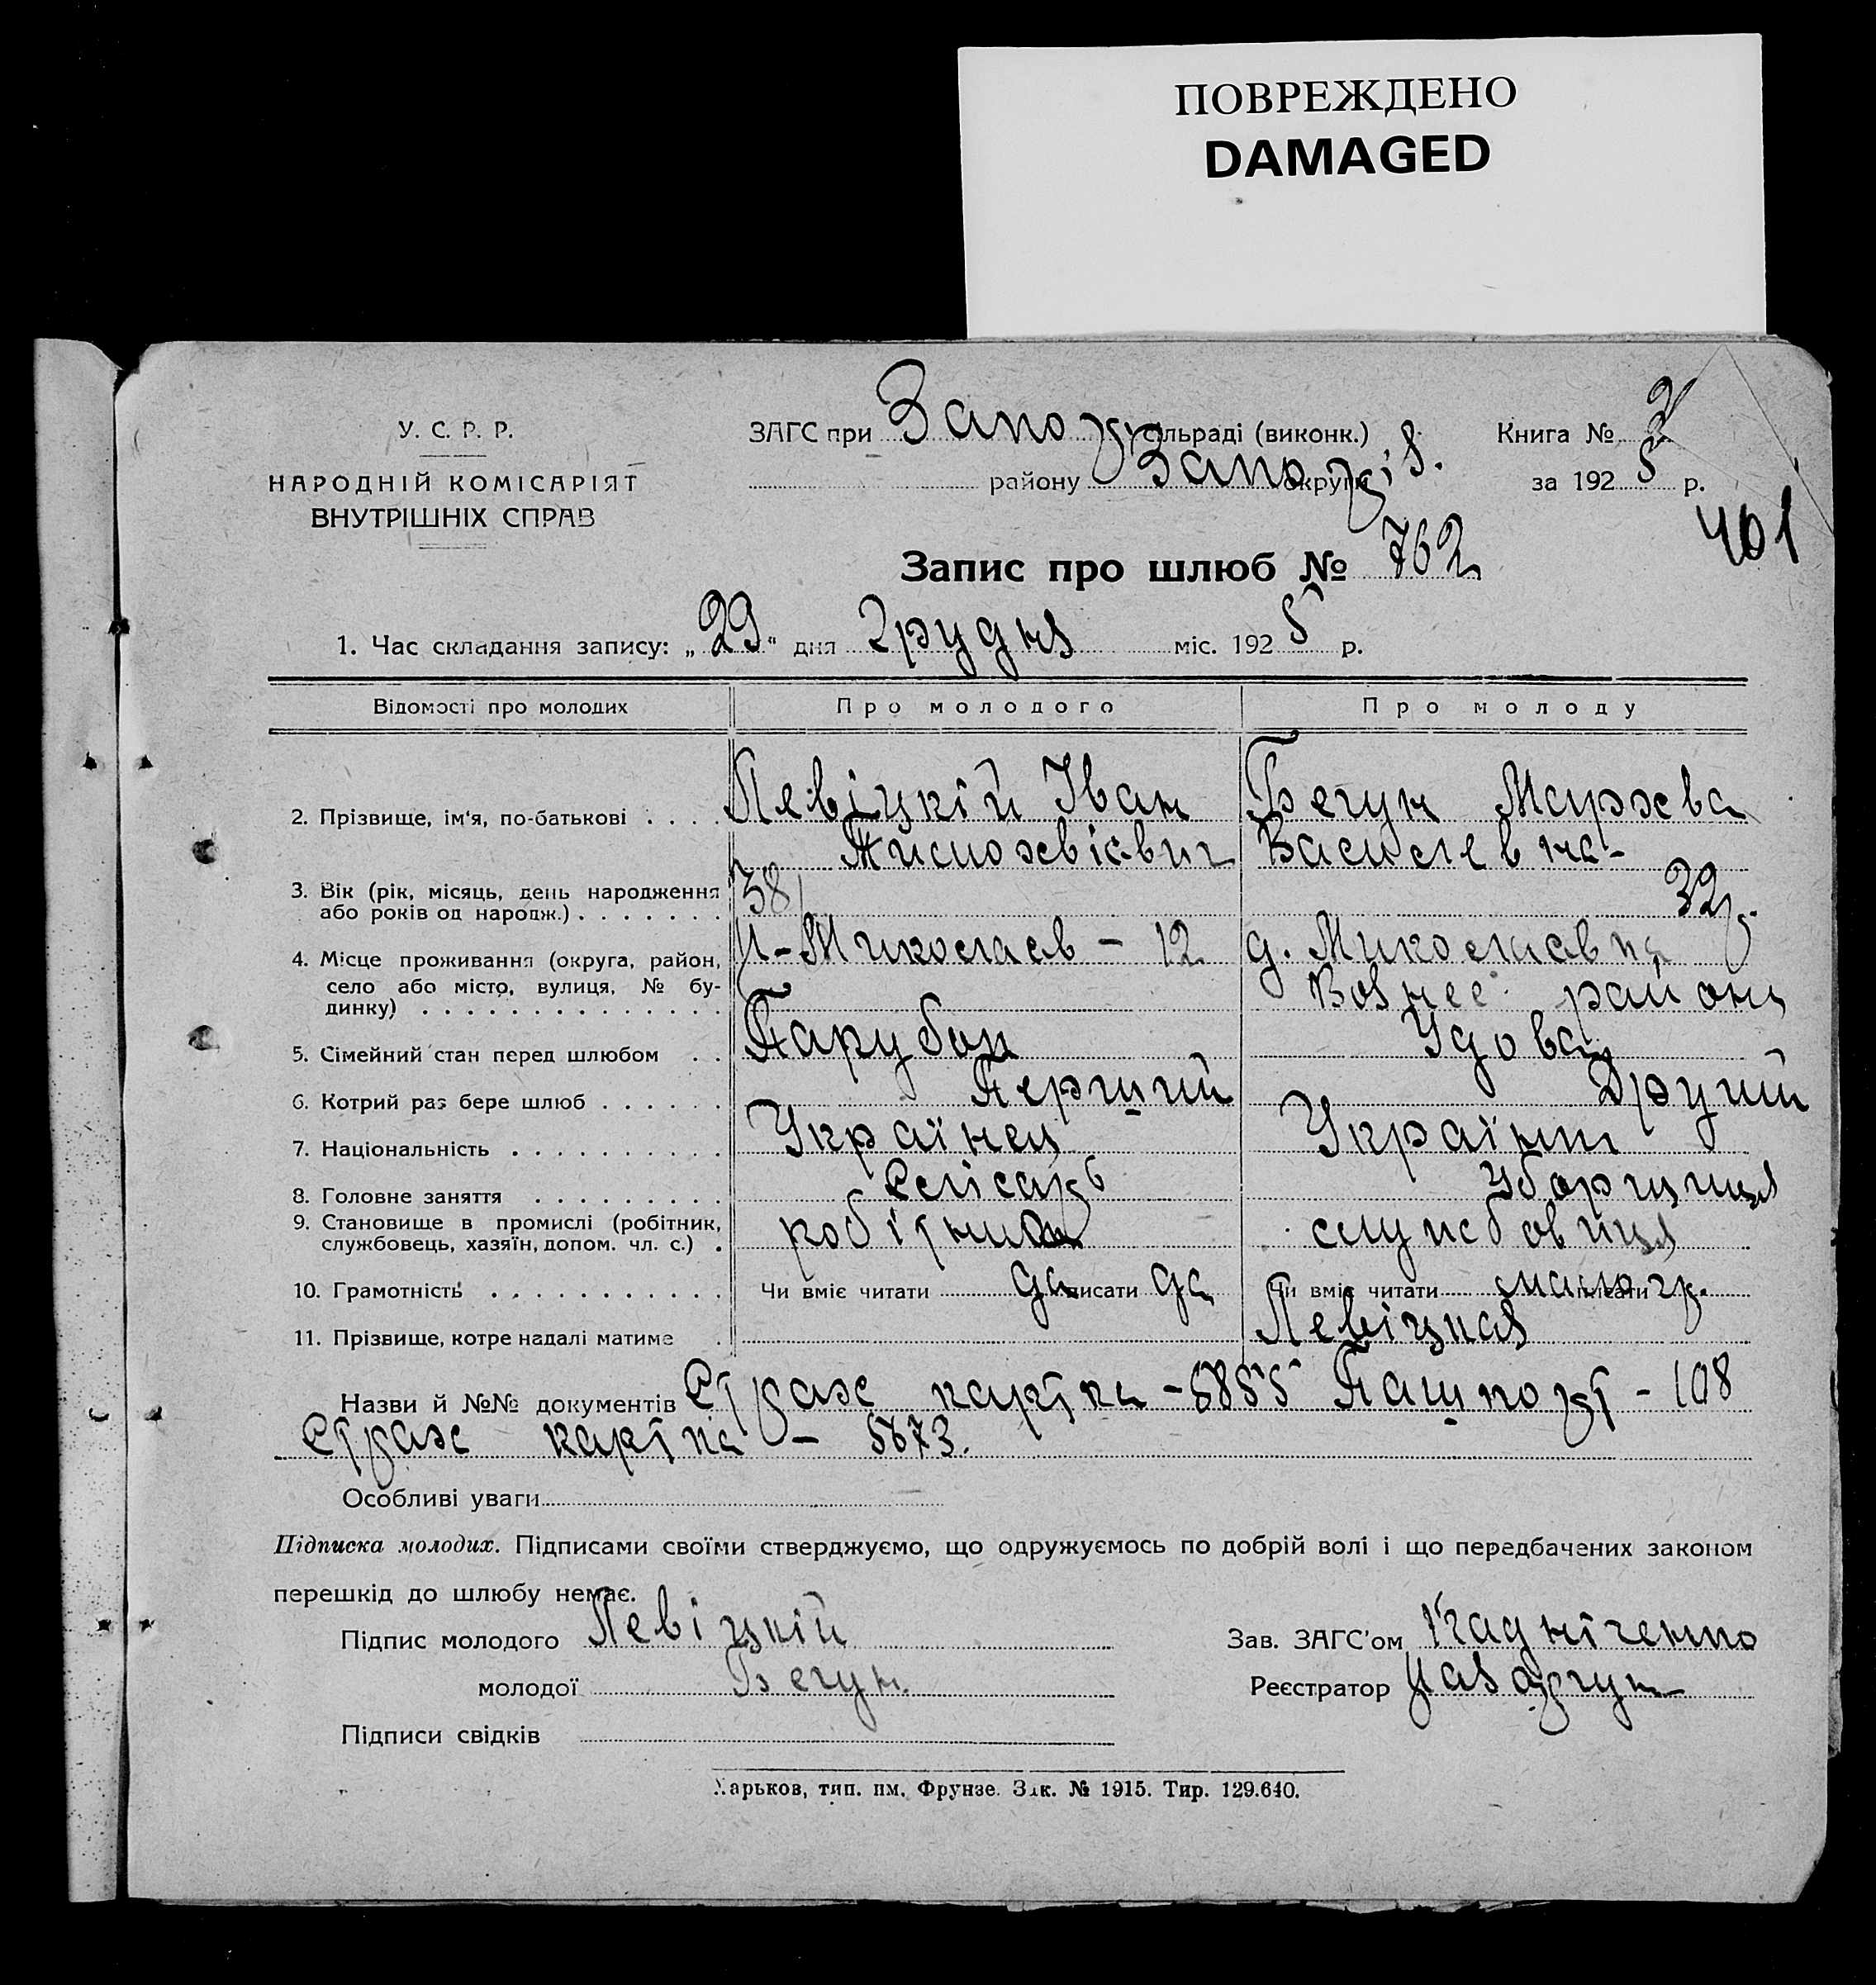 ПОВРЕЖДЕНО
DAMAGED
У. С. Р. Р.
НАРОДНІЙ КОМІСАРІЯТ
ВНУТРІШНІХ СПРАВ
ЗАГС при Запор сільраді (виконк.)
району Запоріз. округи
Книга № 3
за 1925 р.
401
Запис про шлюб № 762
1. Час складання запису: „29“ дня Грудня міс. 1925 р.
Відомості про молодих Про молодого Про молоду
2. Прізвище, ім'я, по-батькові . . . . Левіцкій Іван Бегун Мархва
Тимохвієвич Василевна
3. Вік (рік, місяць, день народження
або років од народж.) . . . . . . . 38 32р.
4. Місце проживання (округа, район,
село або місто, вулиця, № бу-
динку) . . . . . . . . . . . . . . Миколаев - 12 д. Миколаевка
Вознес. района
5. Сімейний стан перед шлюбом . . Парубок Удова
6. Котрий раз бере шлюб . . . . . . Перший Другий
7. Національність . . . . . . . . . . Українец Українк
8. Головне заняття . . . . . . . . . Слісарь Уборщиця
9. Становище в промислі (робітник,
службовець, хазяїн, допом. чл. с.) . робітник службовиця
10. Грамотність . . . . . . . . . . . Чи вміє читати да писати да Чи вміє читати мало писати гр.
11. Прізвище, котре надалі матиме . Левіцкая
Назви й №№ документів Страх картка - 5855 Пашпорт - 108
Страх картка - 5673.
Особливі уваги
Підписка молодих. Підписами своїми стверджуємо, що одружуємось по добрій волі і що передбачених законом
перешкід до шлюбу немає.
Підпис молодого Левіцкій Зав. ЗАГС'ом
молодої Бегун. Реєстратор
Підписи свідків
Харьков, тип. им. Фрунзе. Зак. № 1915. Тир. 129.640.